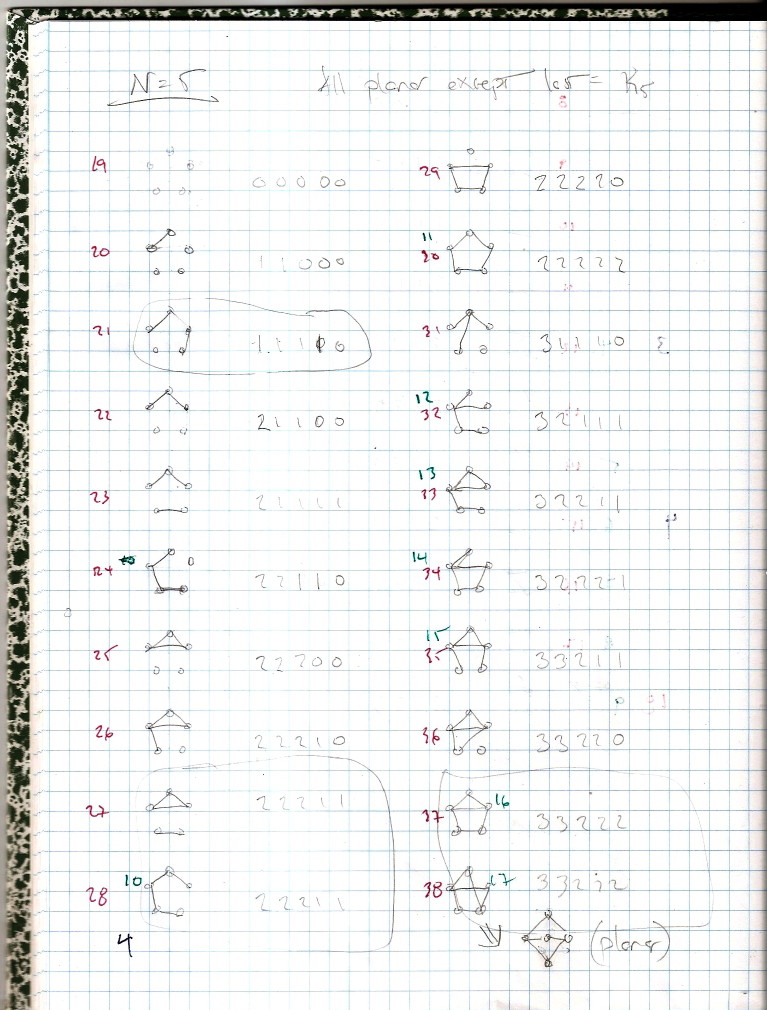 N=5 All planar except last = K5
19 00000
29 22220
20 11000
11
30 22222
21 11110
31 31110
22 21100
12
32 32111
23 21111
13
33 32211
24 22110
14
34 32221
25 22200
15
35 33211
26 22210
36 33220
27 22211
37 16 33222
28 10 22211
38 17 33222
4
(planar)